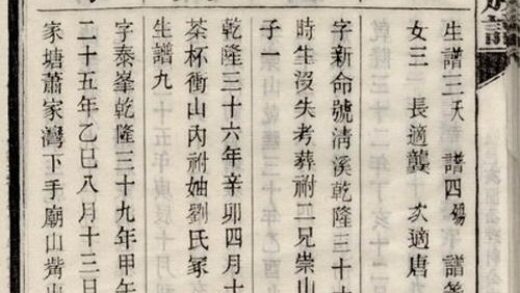 生譜三夭 譜四殤 譜
女三 長適龔 次適唐
字新命號淸溪乾隆三十
時生沒失考葬祔二兄崇山
子一
乾隆三十六年辛卯四月十
茶杯衝山內祔妯劉氏冢
生譜九
字泰峯乾隆三十九年甲午
二十五年乙巳八月十三日
家塘蕭家灣下手廟山觜